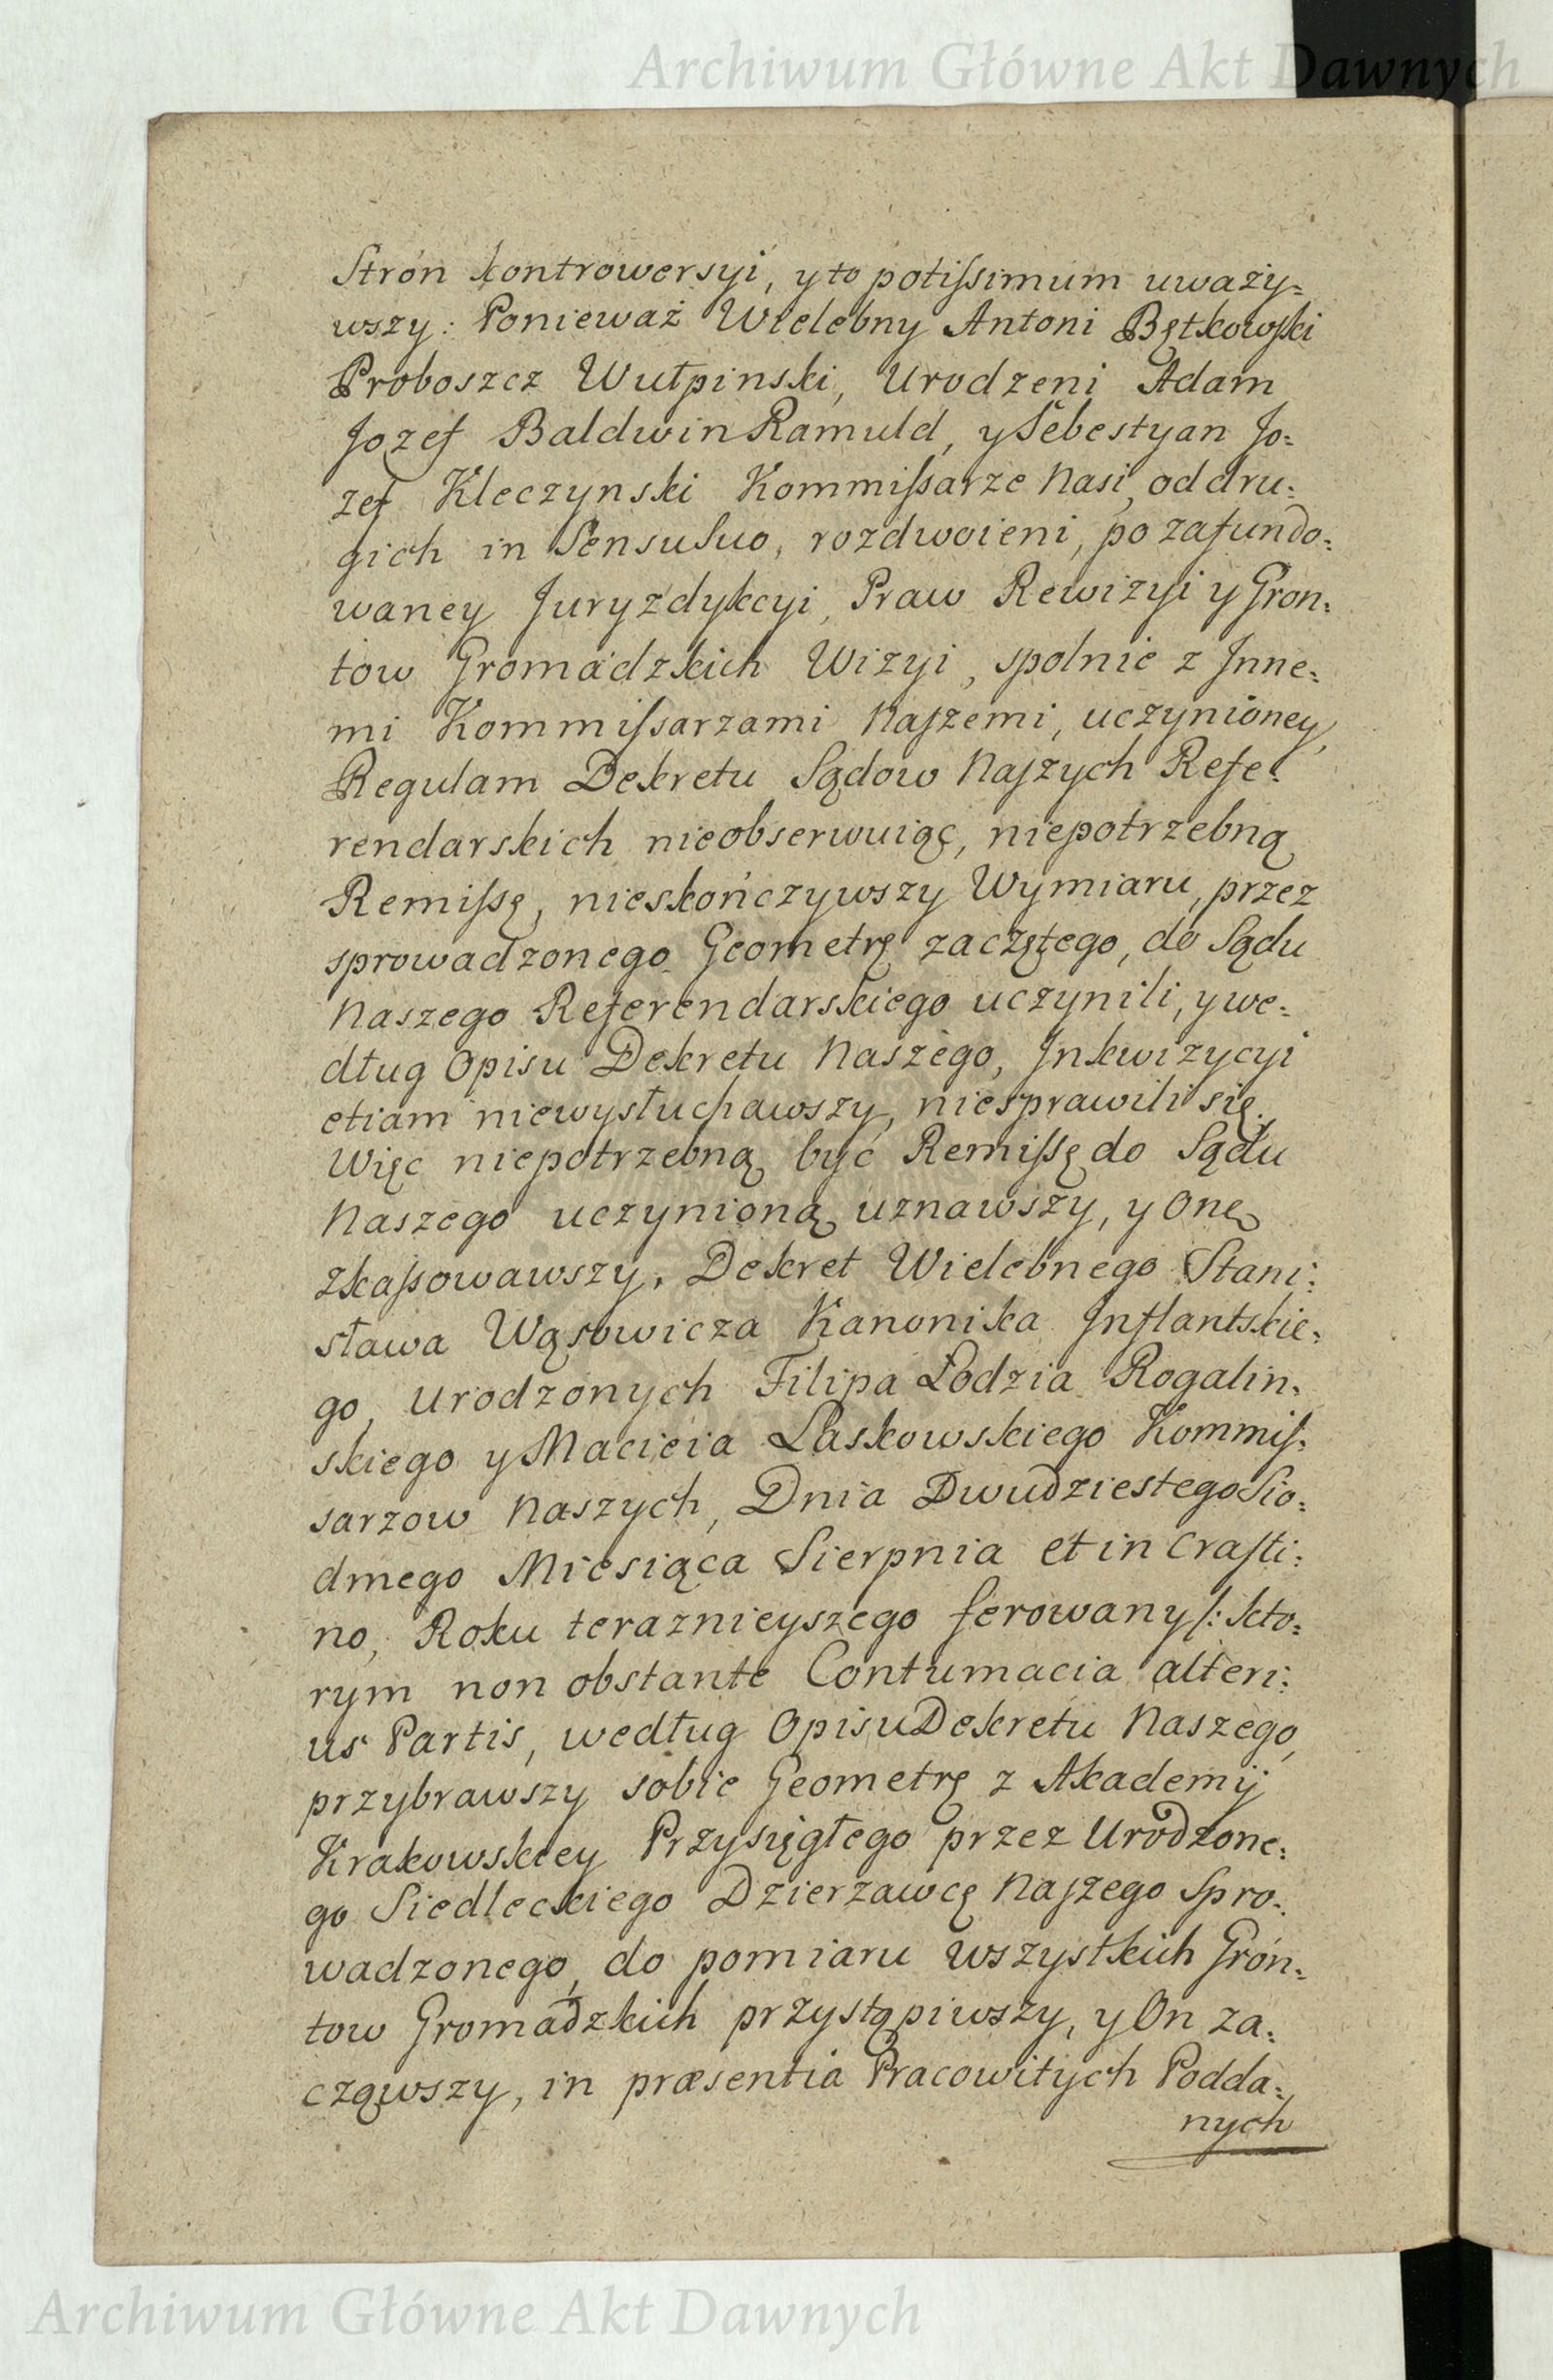 Archiwum Główne Akt Dawnych
Strón kontrowersyi, y to potiſsimum uważy=
wszy: Ponieważ Wielebny Antoni Bętkowſki
Proboszcz Wułpinski, Urodzeni Adam
Jozef Baldwin Ramuld, y Sebestyan Jo=
zef Kleczynski Kommiſsarze Nasi, od dru=
gich in Sensu Suo, rozdwoieni, po zafundo=
waney Juryzdykcyi, Praw Rewizyi y Gron=
tow Gromadzkich Wizyi, spolnie z Jnne=
mi Kommiſsarzami Naſzemi, uczynioney,
Regulam Dekretu Sądow Naſzych Refe=
rendarskich nieobserwuiąc, niepotrzebną
Remiſsę, nieskończywszy Wymiaru, przez
sprowadzonego Geometrę zaczętego, do Sądu
Naszego Referendarskiego uczynili, y we=
dług Opisu Dekretu Naszego, Jnkwizycyi
etiam niewysłuchawszy, niesprawili się.
Więc niepotrzebną być Remiſsę do Sądu
Naszego uczynioną uznawszy, y onę
zkaſsowawszy, Dekret Wielebnego Stani=
sława Wąsowicza Kanonika Jnflantskie=
go, Urodzonych Filipa Łodzia Rogalin=
skiego y Macieia Laskowskiego Kommiſ=
sarzow Naszych, Dnia Dwudziestego Sio=
dmego Miesiąca Sierpnia et in Craſti=
no, Roku teraznieyszego ferowany /: kto=
rym non obstante Contumacia alteri=
us Partis, według Opisu Dekretu Naszego,
przybrawszy sobie Geometrę z Akademij
Krakowskiey Przysięgłego przez Urodzone=
go Siedleckiego Dzierzawcę Naſzego Spro=
wadzonego, do pomiaru wszystkich Grón=
tow Gromadzkich przystąpiwszy, y On za=
cząwszy, in præsentia Pracowitych Podda=
nych
Archiwum Główne Akt Dawnych